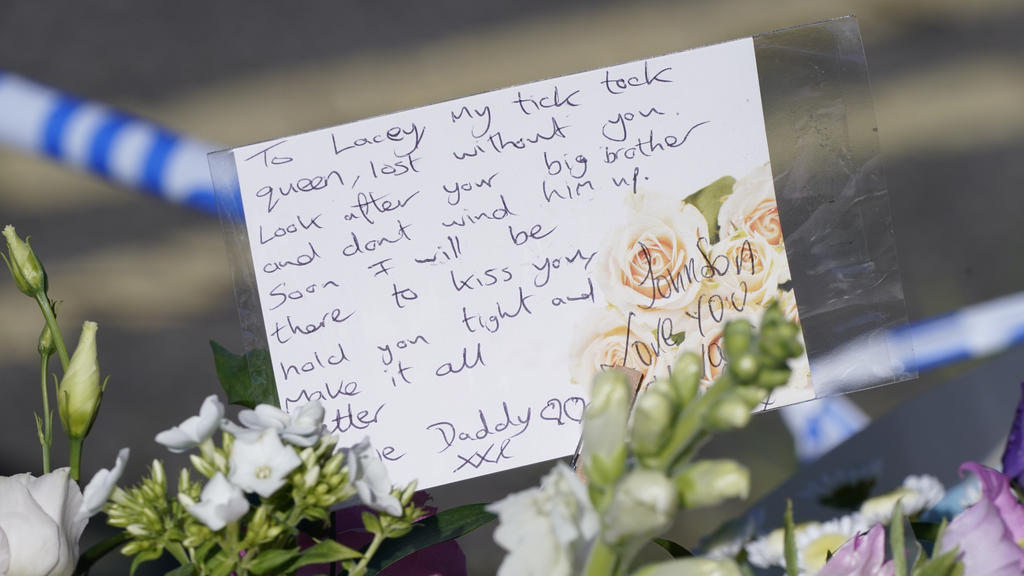 To Lacey My tick tock
queen, lost without you.
Look after your big brother
and dont wind him up.
Soon I will be
there to kiss you,
hold you tight and
Make it all
tter
Daddy
xxx
love you